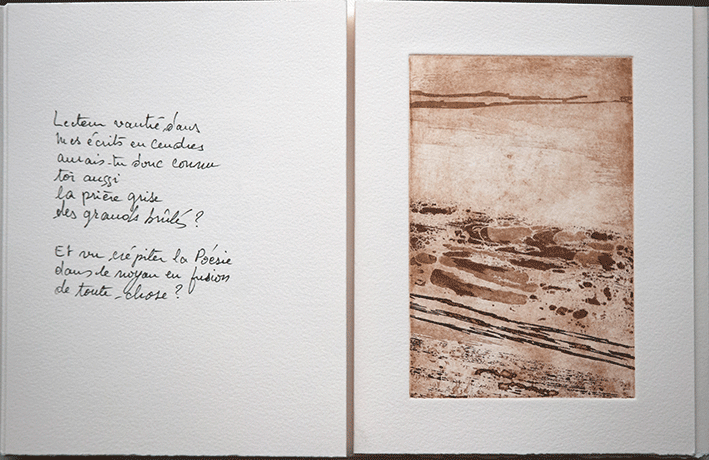 Lecteur vautré dans
mes écrits en cendres
aurais-tu donc connu
toi aussi
la prière grise
des grands brûlés ?
Et vu crépiter la Poésie
dans le noyau en fusion
de toute-chose ?